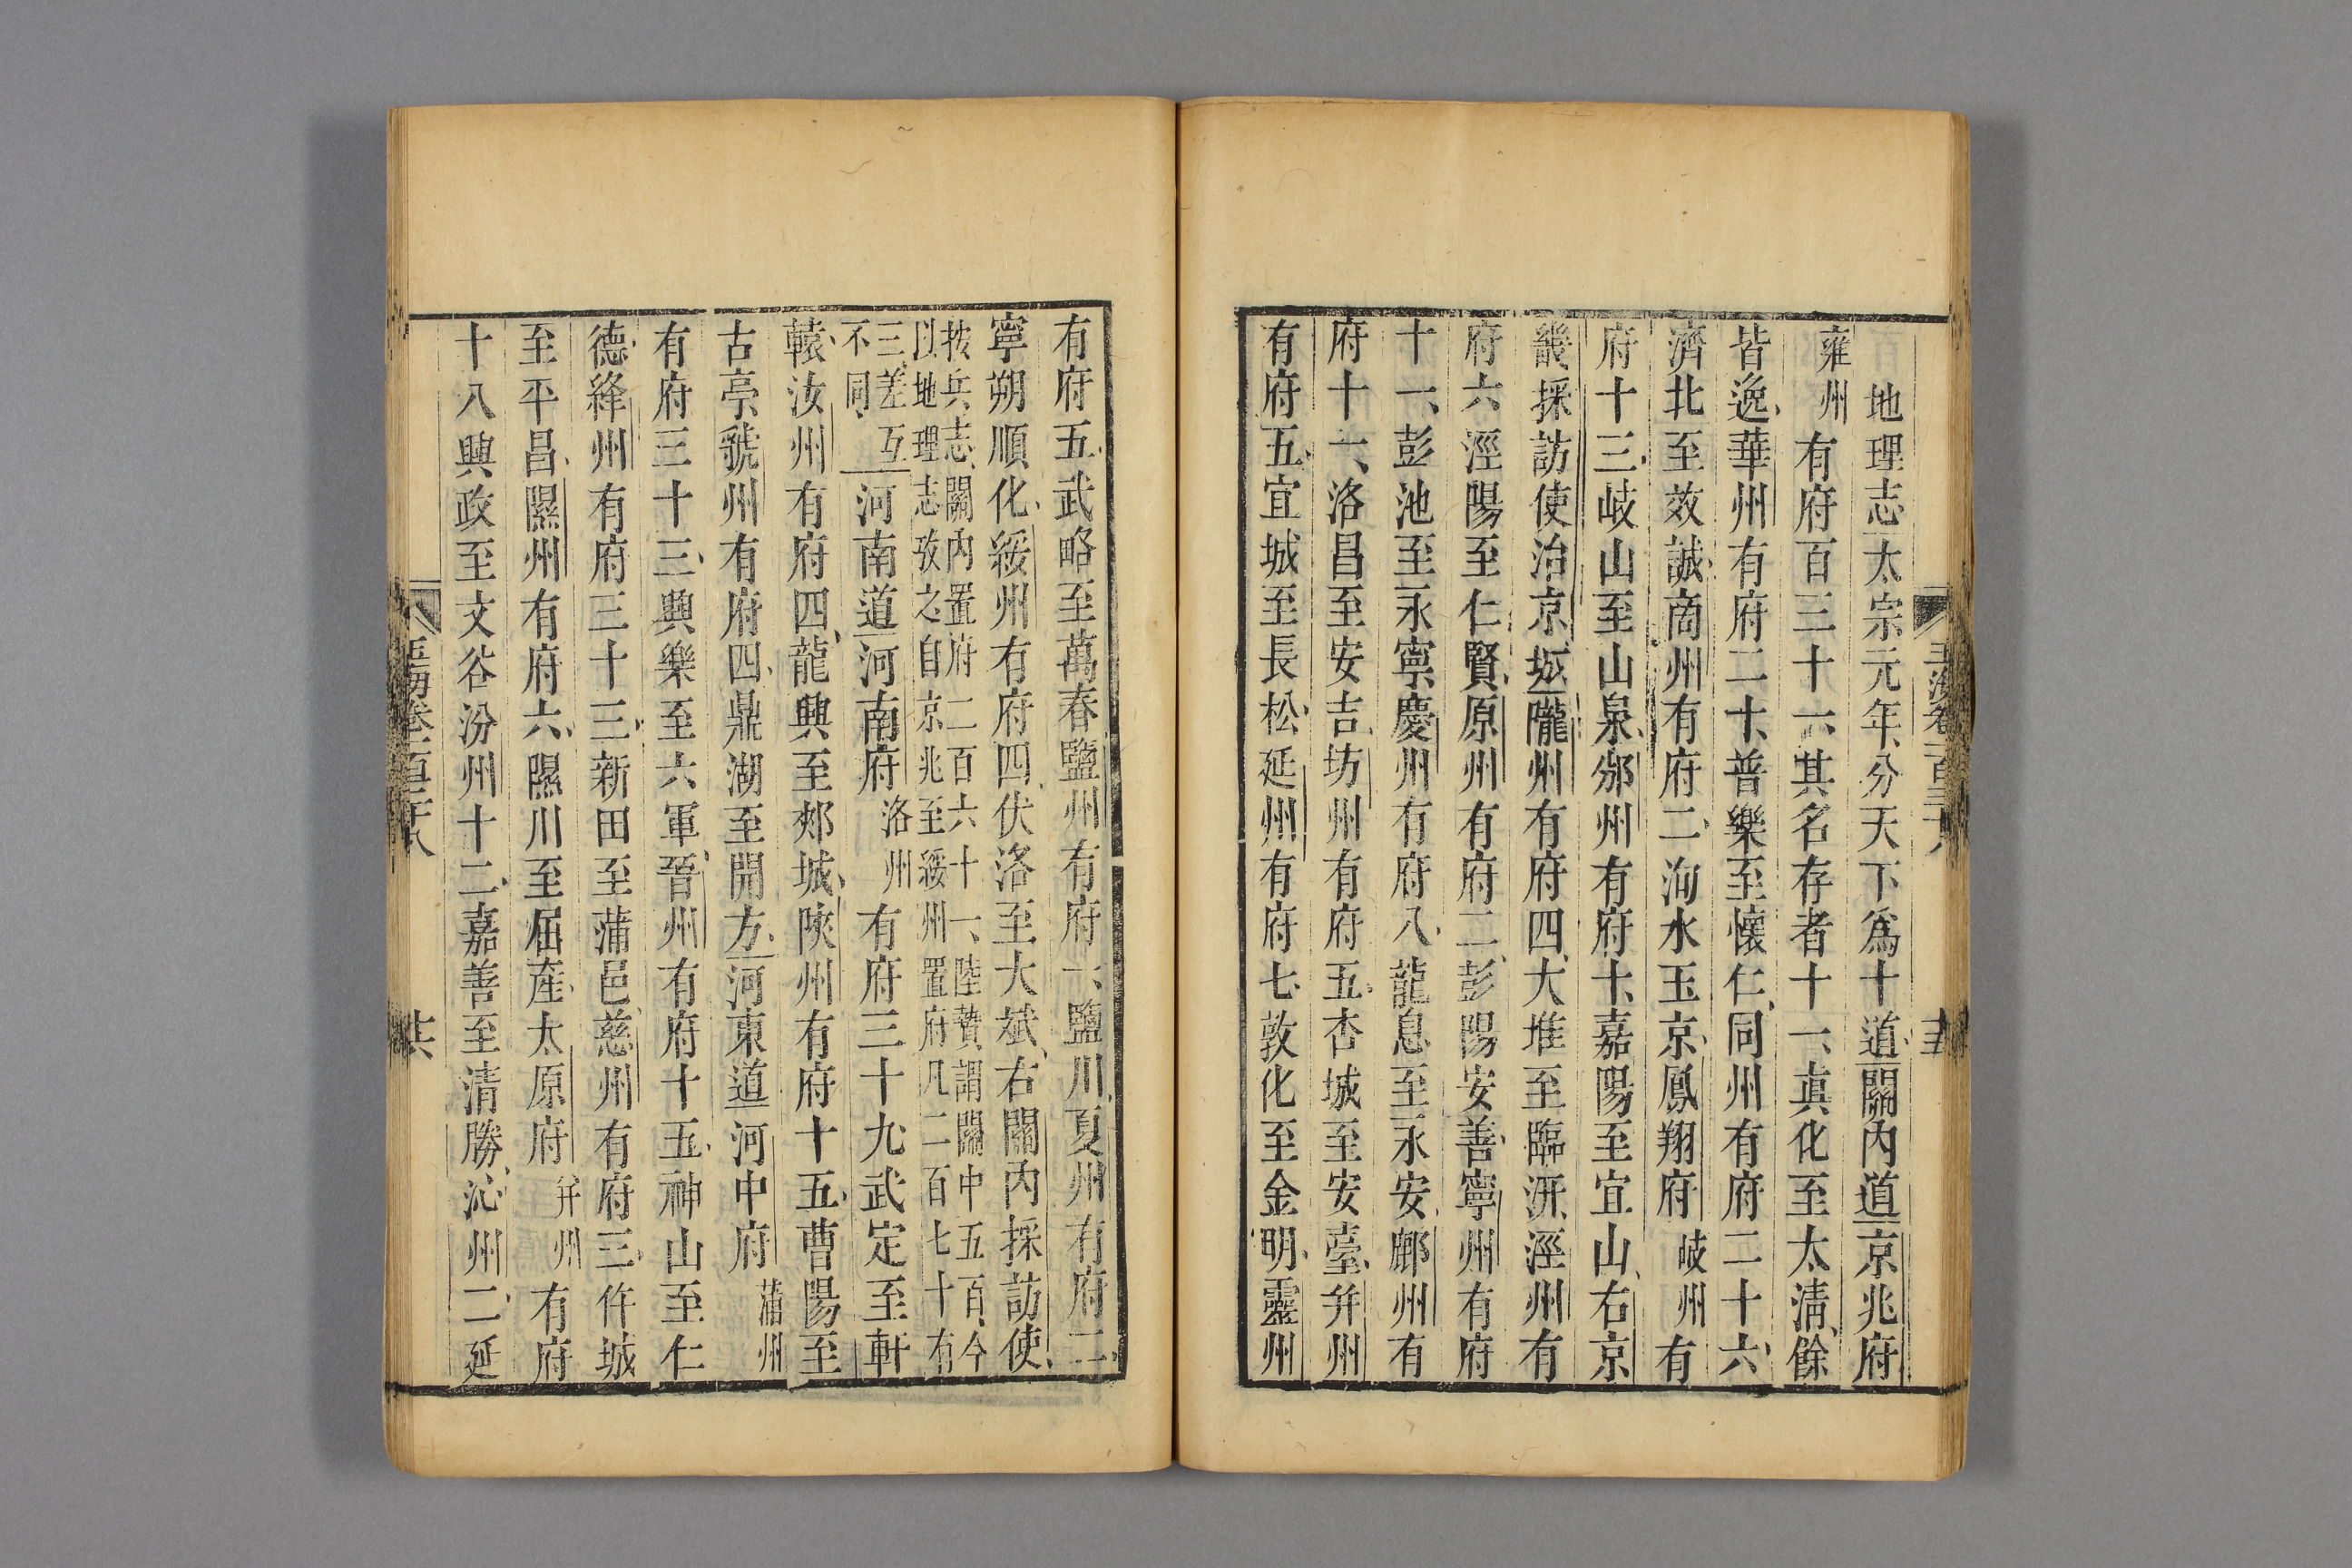 地理志太宗元年分天下爲十道關內道京兆府
雍州有府百三十一其名存者十一眞化至太淸餘
皆逸華州有府二十普樂至懷仁同州有府二十六
濟北至效誠商州有府二洵水玉京鳳翔府岐州有
府十三岐山至山泉邠州有府十嘉陽至宜山右京
畿採訪使治京城隴州有府四大堆至臨汧涇州有
府六涇陽至仁賢原州有府二彭陽安善寧州有府
十一彭池至永寧慶州有府八龍息至永安鄜州有
府十一洛昌至安吉坊州有府五杏城至安臺丹州
有府五宜城至長松延州有府七敦化至金明靈州
有府五武略至萬春鹽州有府一鹽川夏州有府二
寧朔順化綏州有府四伏洛至大斌右關內採訪使
按兵志關內置府二百六十一陸贄謂關中五百今
以地理志攷之自京兆至綏州置府凡二百七十有
三差互
不同
河南道河南府洛州有府三十九武定至軒
轅汝州有府四龍興至郟城陝州有府十五曹陽至
古亭虢州有府四鼎湖至開方河東道河中府蒲州
有府三十三興樂至六軍晉州有府十五神山至仁
德絳州有府三十三新田至蒲邑慈州有府三仵城
至平昌隰州有府六隰川至屈產太原府幷州有府
十八興政至文谷汾州十二嘉善至清勝沁州二延
玉海卷一百三十八
玉海卷一百三十八